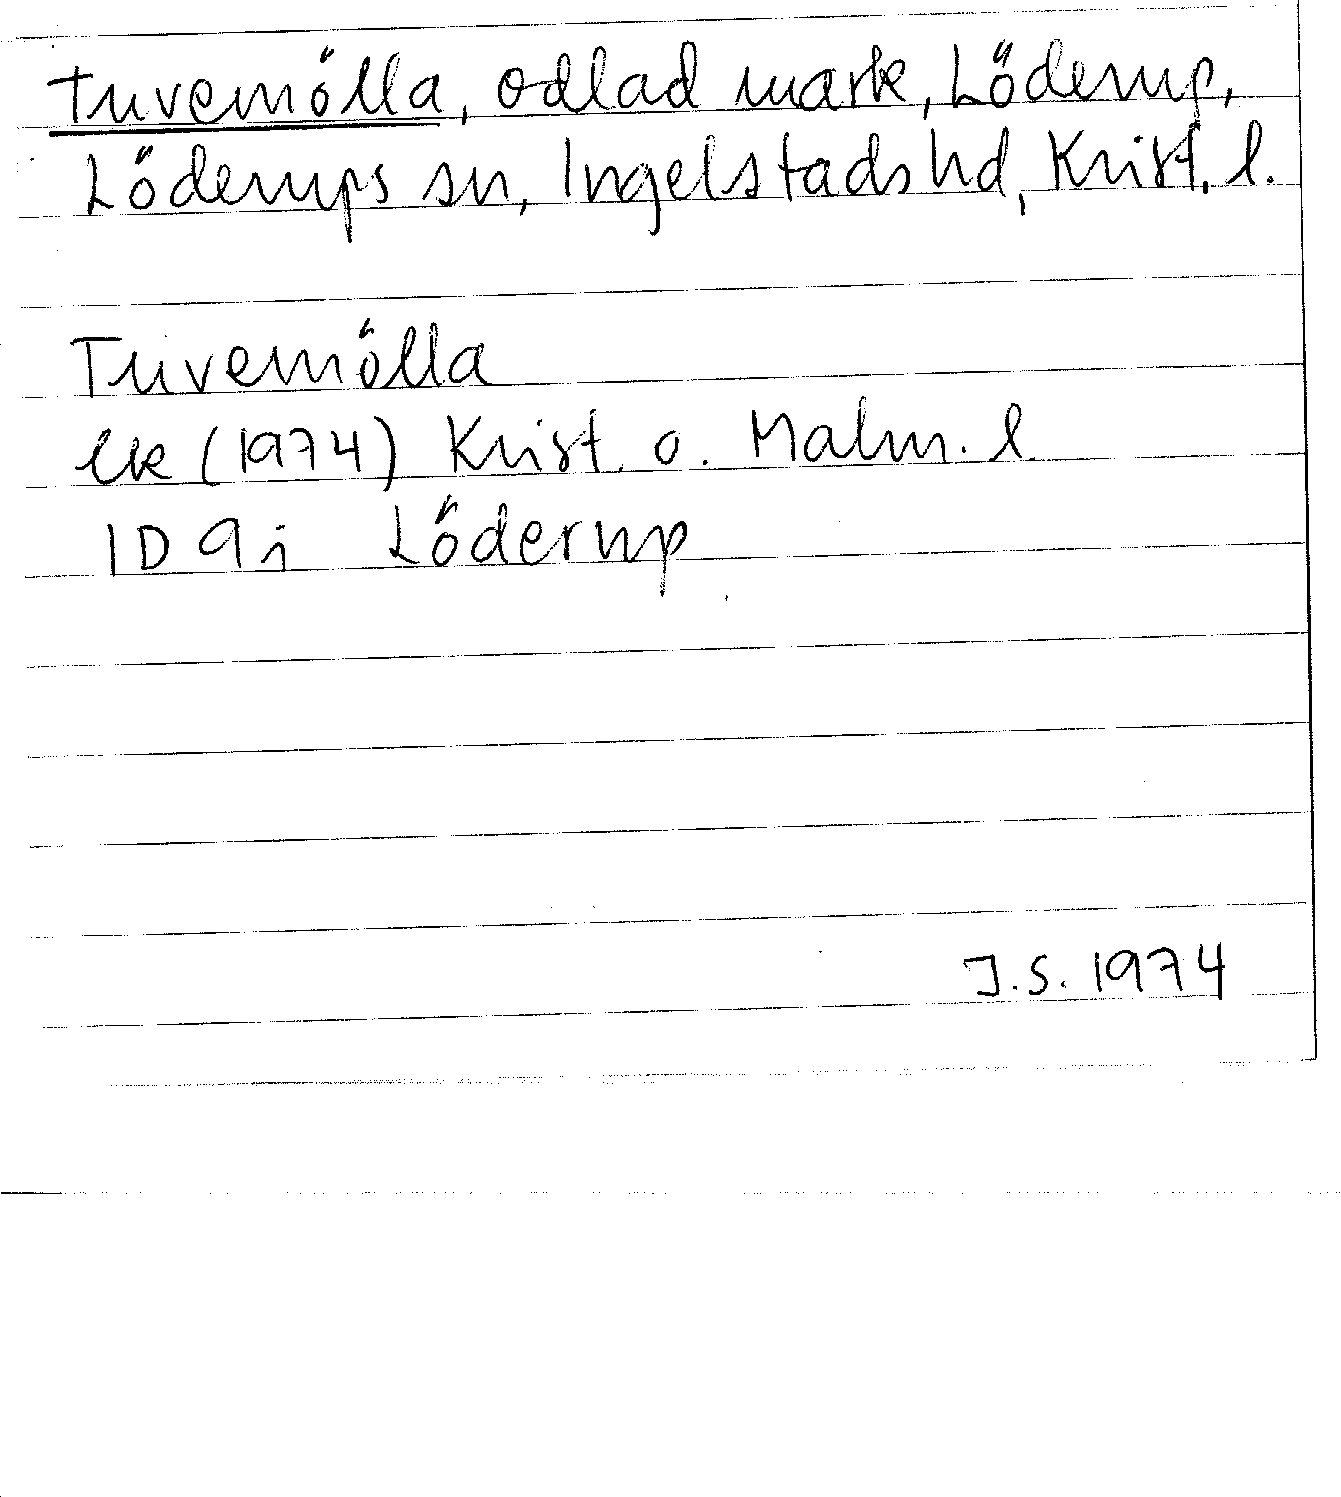 Tuvemölla, odlad mark, Löderup,
Löderups sn, Ingelstads hd, Krist. l.
Tuvemölla
ek (1974) Krist. o. Malm. l.
1D 9i Löderup
J.S. 1974